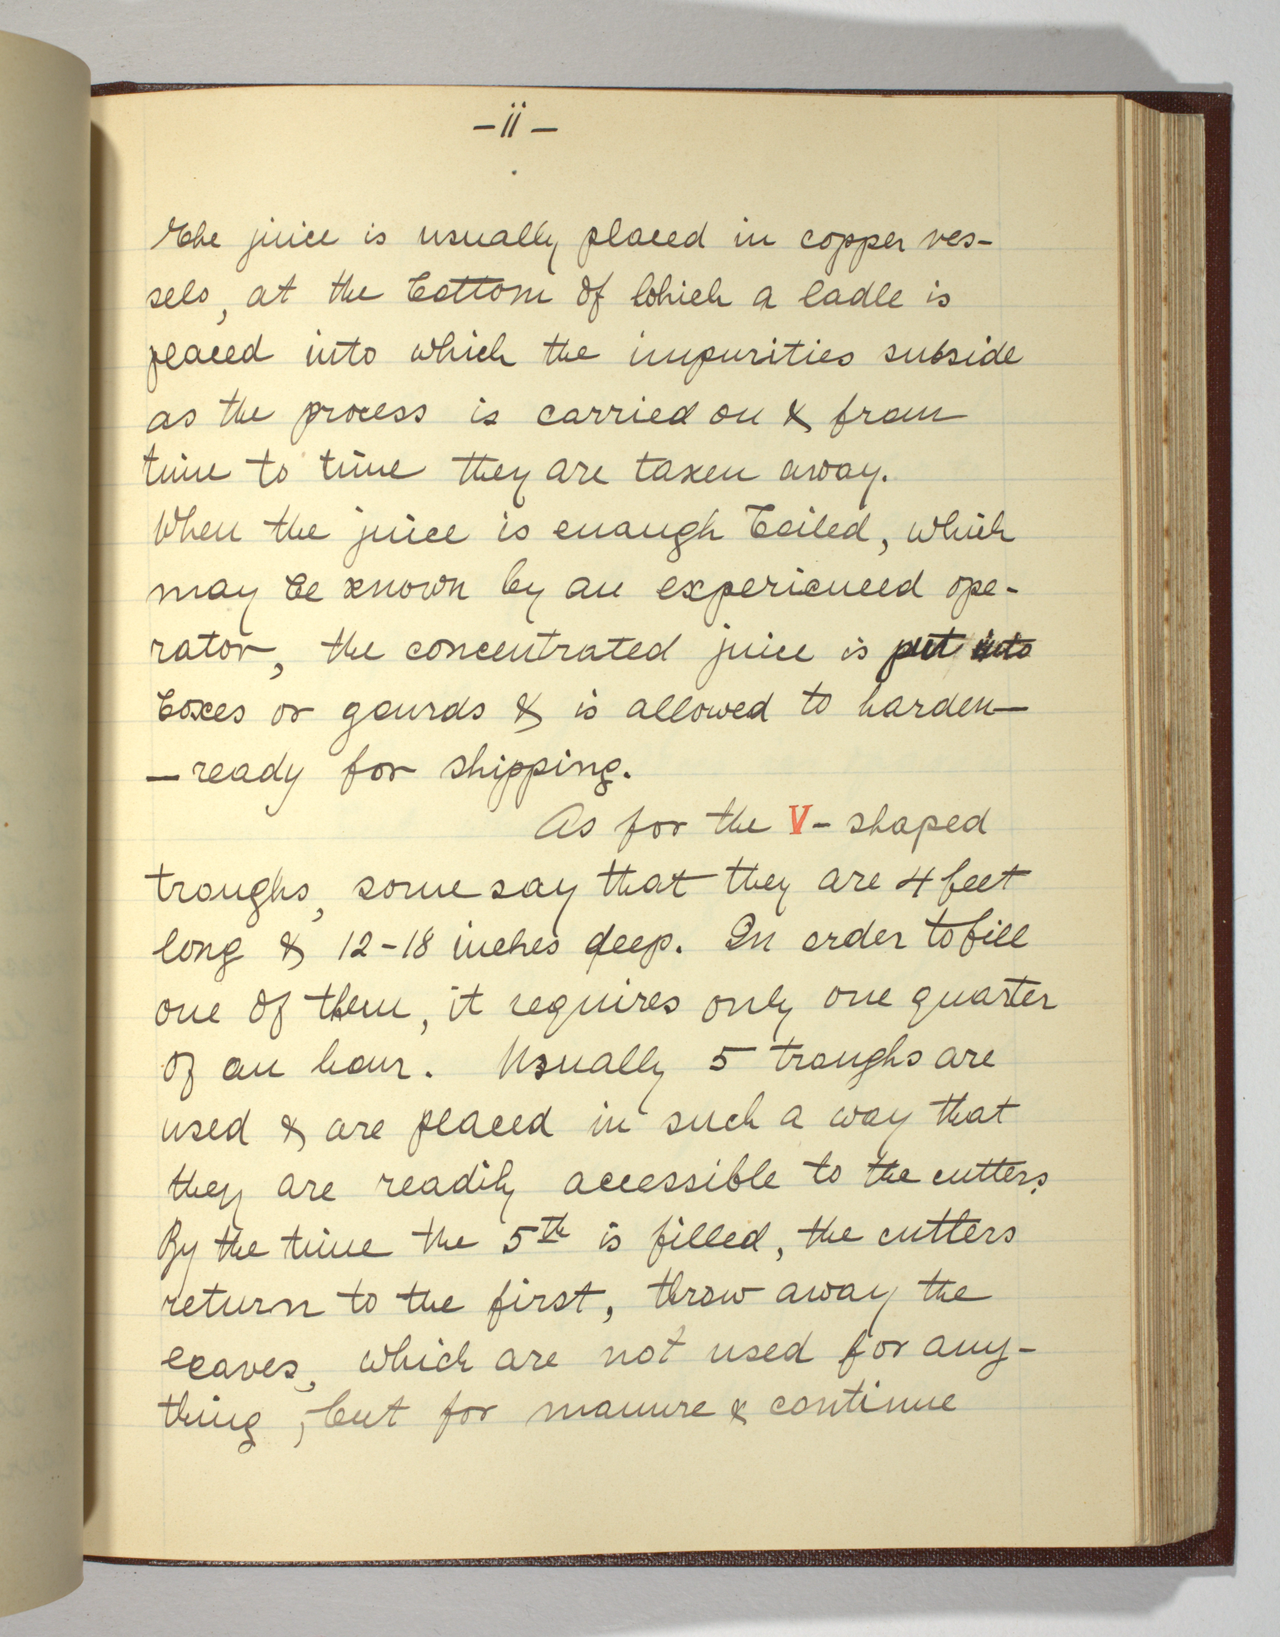 -ii-
The juice is usually placed in copper ves-
sels, at the bottom of which a ladle is
placed into which the impurities subside
as the process is carried on & from
time to time they are taken away.
When the juice is enough boiled, which
may be known by an experienced ope-
rator, the concentrated juice is put into
boxes or gourds & is allowed to harden—
—ready for shipping.
As for the V- shaped
troughs, some say that they are 4 feet
long & 12-18 inches deep. In order to fill
one of them, it requires only one quarter
of an hour. Usually 5 troughs are
used & are placed in such a way that
they are readily accessible to the cutters.
By the time the 5th is filled, the cutters
return to the first, throw away the
leaves, which are not used for any-
thing, but for manure & continue